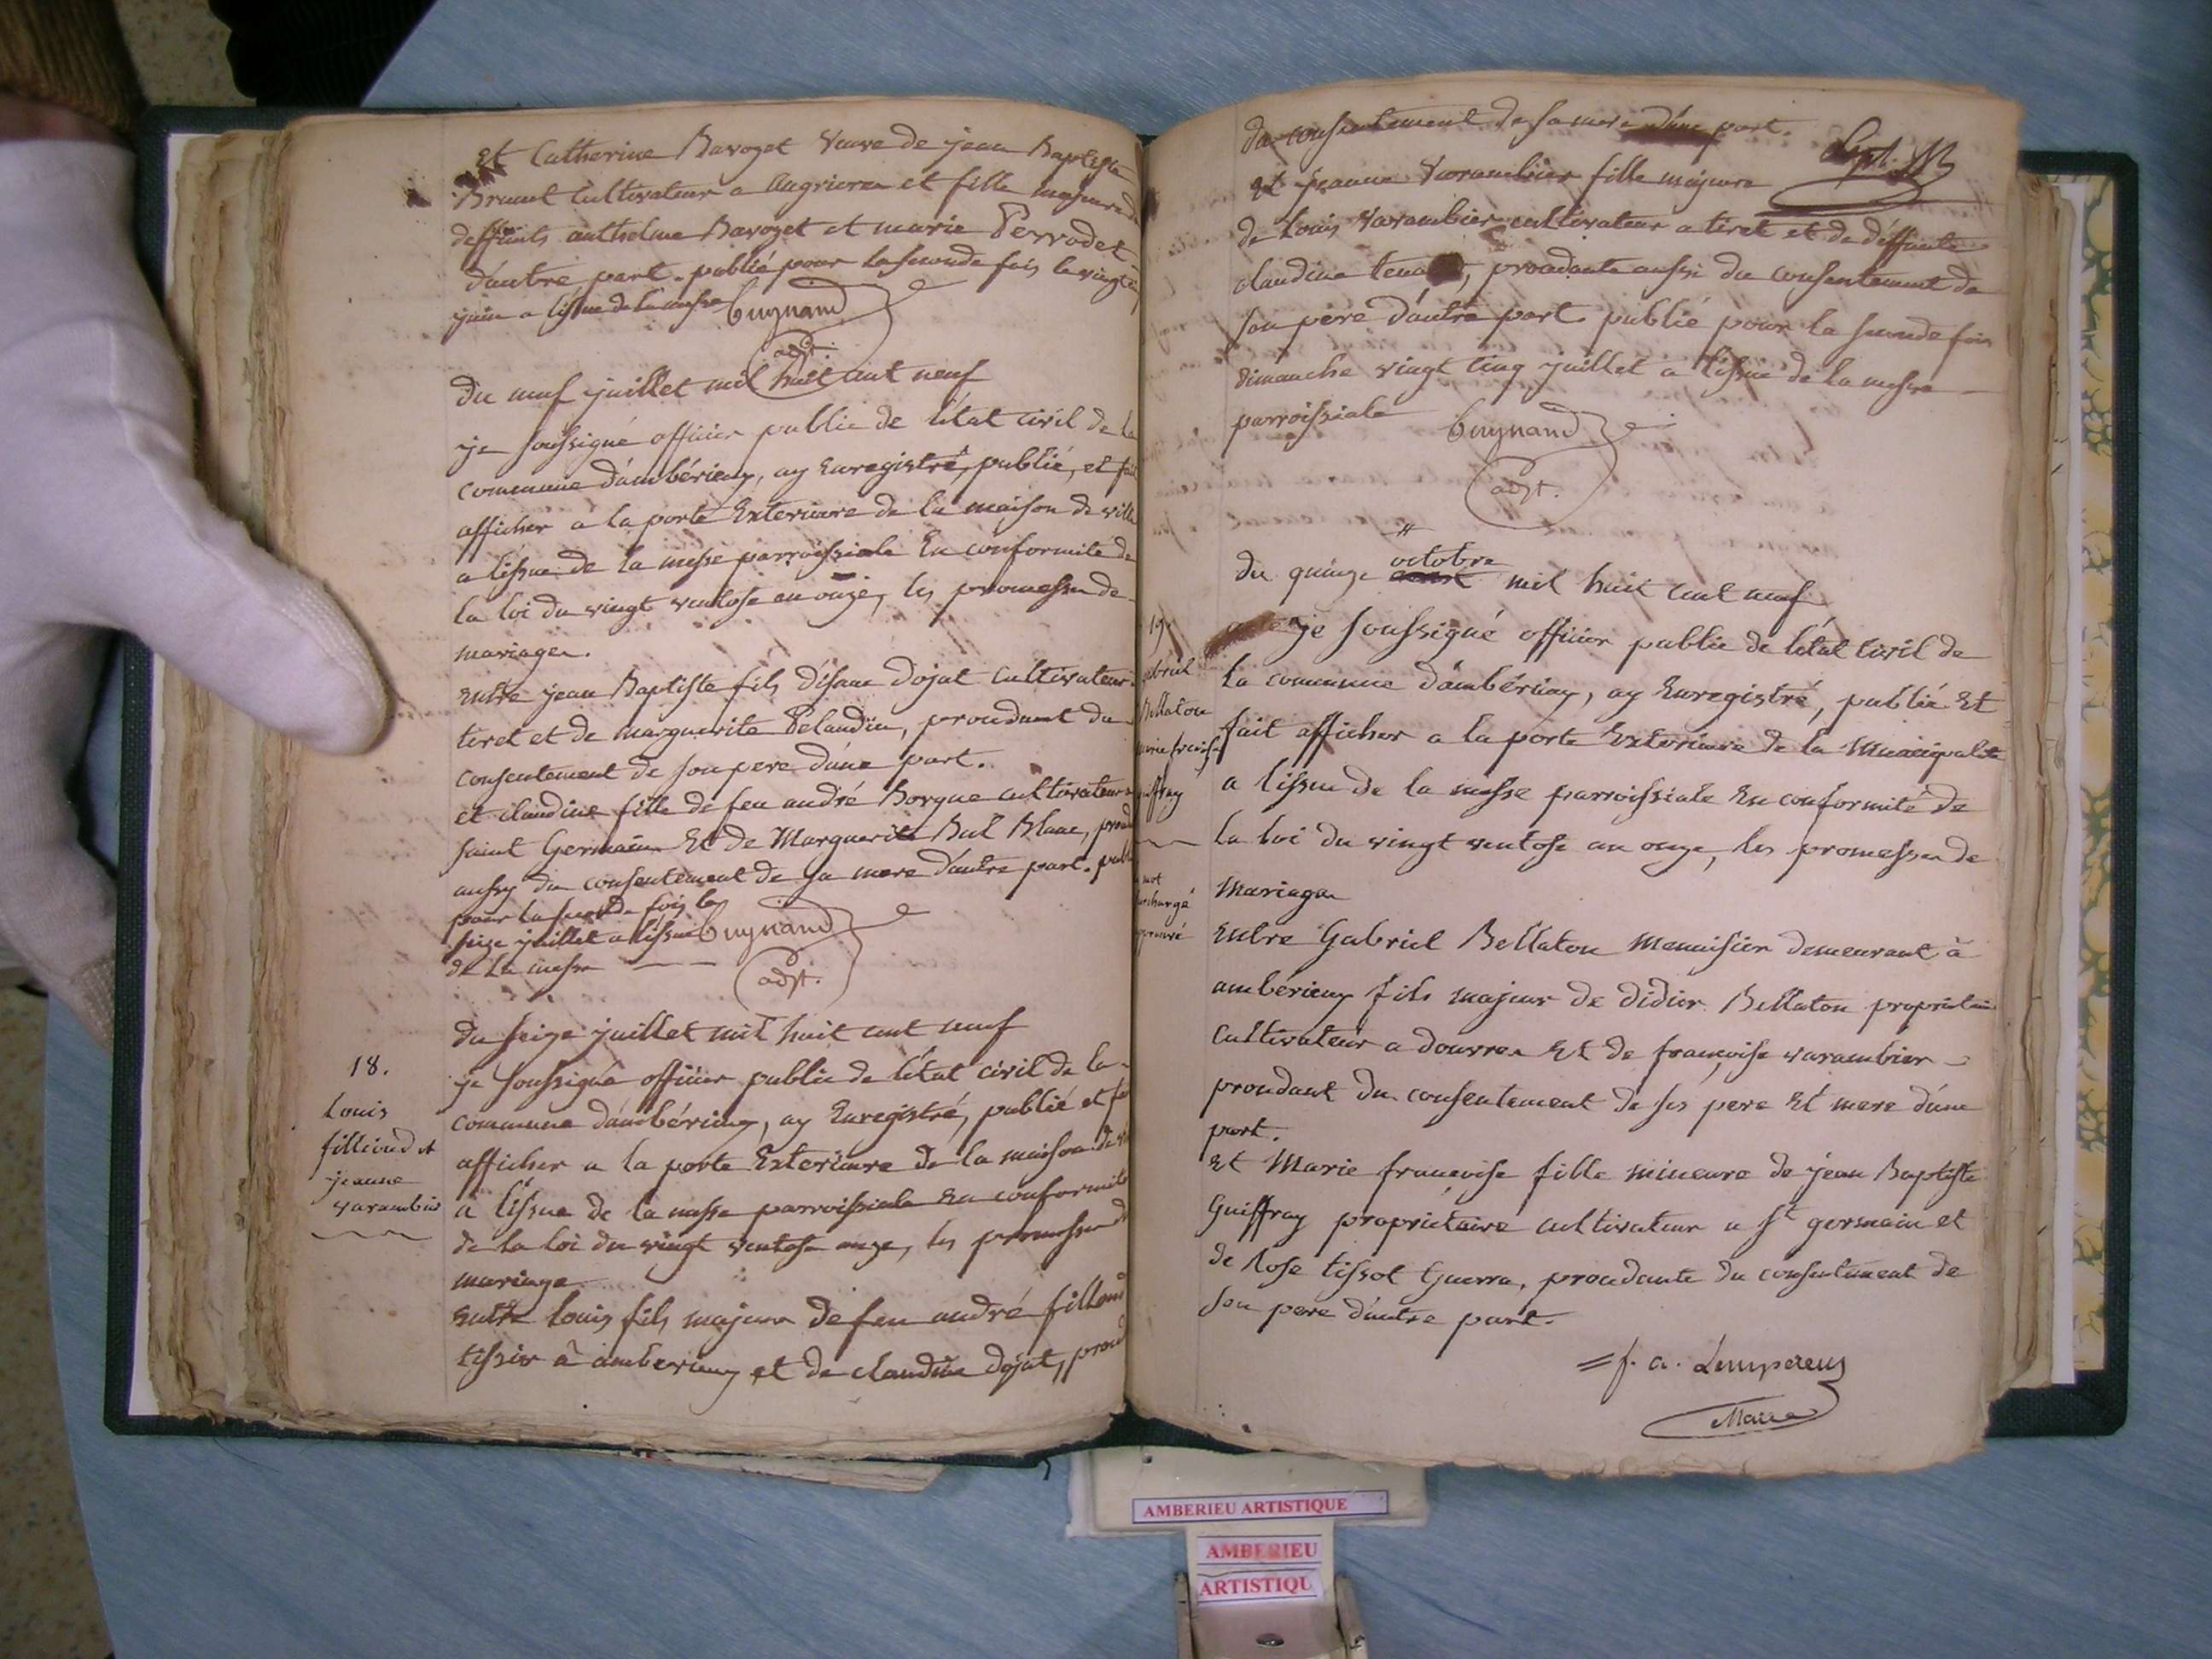 Et Catherine Bavozet veuve de jean Baptiste
Brunet cultivateur a et fille majeure de
deffunts anthelme Bavozet et marie Perrodet
d'autre part. publié pour la seconde fois le vingt
juin a lissue de la messe Cuynand
adjt.
du neuf juillet mil huit cent neuf
je soussigné officier public de l'état civil de la
commune d'ambérieux, ay Enregistré, publié, et fait
afficher a la porte Exterieure de la maison de ville
a lissue de la messe parroissiale En conformité de
la loi du vingt ventose an onze, les promesses de
mariages.
entre jean Baptiste fils d' dojat Cultivateur
tiret et de marguerite Pelaudin, procedant du
consentement de son pere d'une part.
et claudine fille de feu andré Borgne cultivateur a
saint Germain Et de Marguerite Blanc,
aussy du consentement de sa mere d'autre part.
pour la seconde fois le
seize juillet a lissue Cuynand
de la messe
adjt.
du seize juillet mil huit cent neuf
18.
Louis
fillioud et
jeanne
varambier
je soussigné officier public de l'état civil de la
commune d'ambérieux, ay Enregistré, publié et
afficher a la porte Exterieure de la maison de
a l'issue de la messe parroissiale En conformité
de la loi du vingt ventose onze, les promesses de
mariage
entre louis fils majeur de feu andré
tissier à amberieux et de claudine dojat,
du consentement de sa mere d'une part.
Et jeanne varambier fille majeure
de Louis varambier cultivateur a tiret et de déffunte
claudine, procedante aussi du consentement de
son pere d'autre part. publié pour la seconde fois
dimanche vingt cinq juillet a lissue de la messe
parroissiale Cuynand
adjt.
du quinze octobre mil huit cent neuf
19.
Bellaton
je soussigné officier public de l'état civil de
la commune d'ambérieux, ay Enregistré, publié Et
fait afficher a la porte Exterieure de la Municipalité
a lissue de la messe parroissiale En conformité de
la loi du vingt ventose an onze, les promesses de
mariages
Entre Gabriel Bellaton menuisier demeurant à
ambérieux fils majeur de didier Bellaton proprietaire
Cultivateur a douvres Et de françoise varambier
procedant du consentement de ses pere Et mere d'une
part.
Et Marie françoise fille mineure de jean Baptiste
Guiffray propriétaire cultivateur a st germain et
de Rose tissot Guerra, procedante du consentement de
son pere d'autre part.
f. a. Lempereur
Maire
AMBERIEU ARTISTIQUE
AMBERIEU
ARTISTIQU